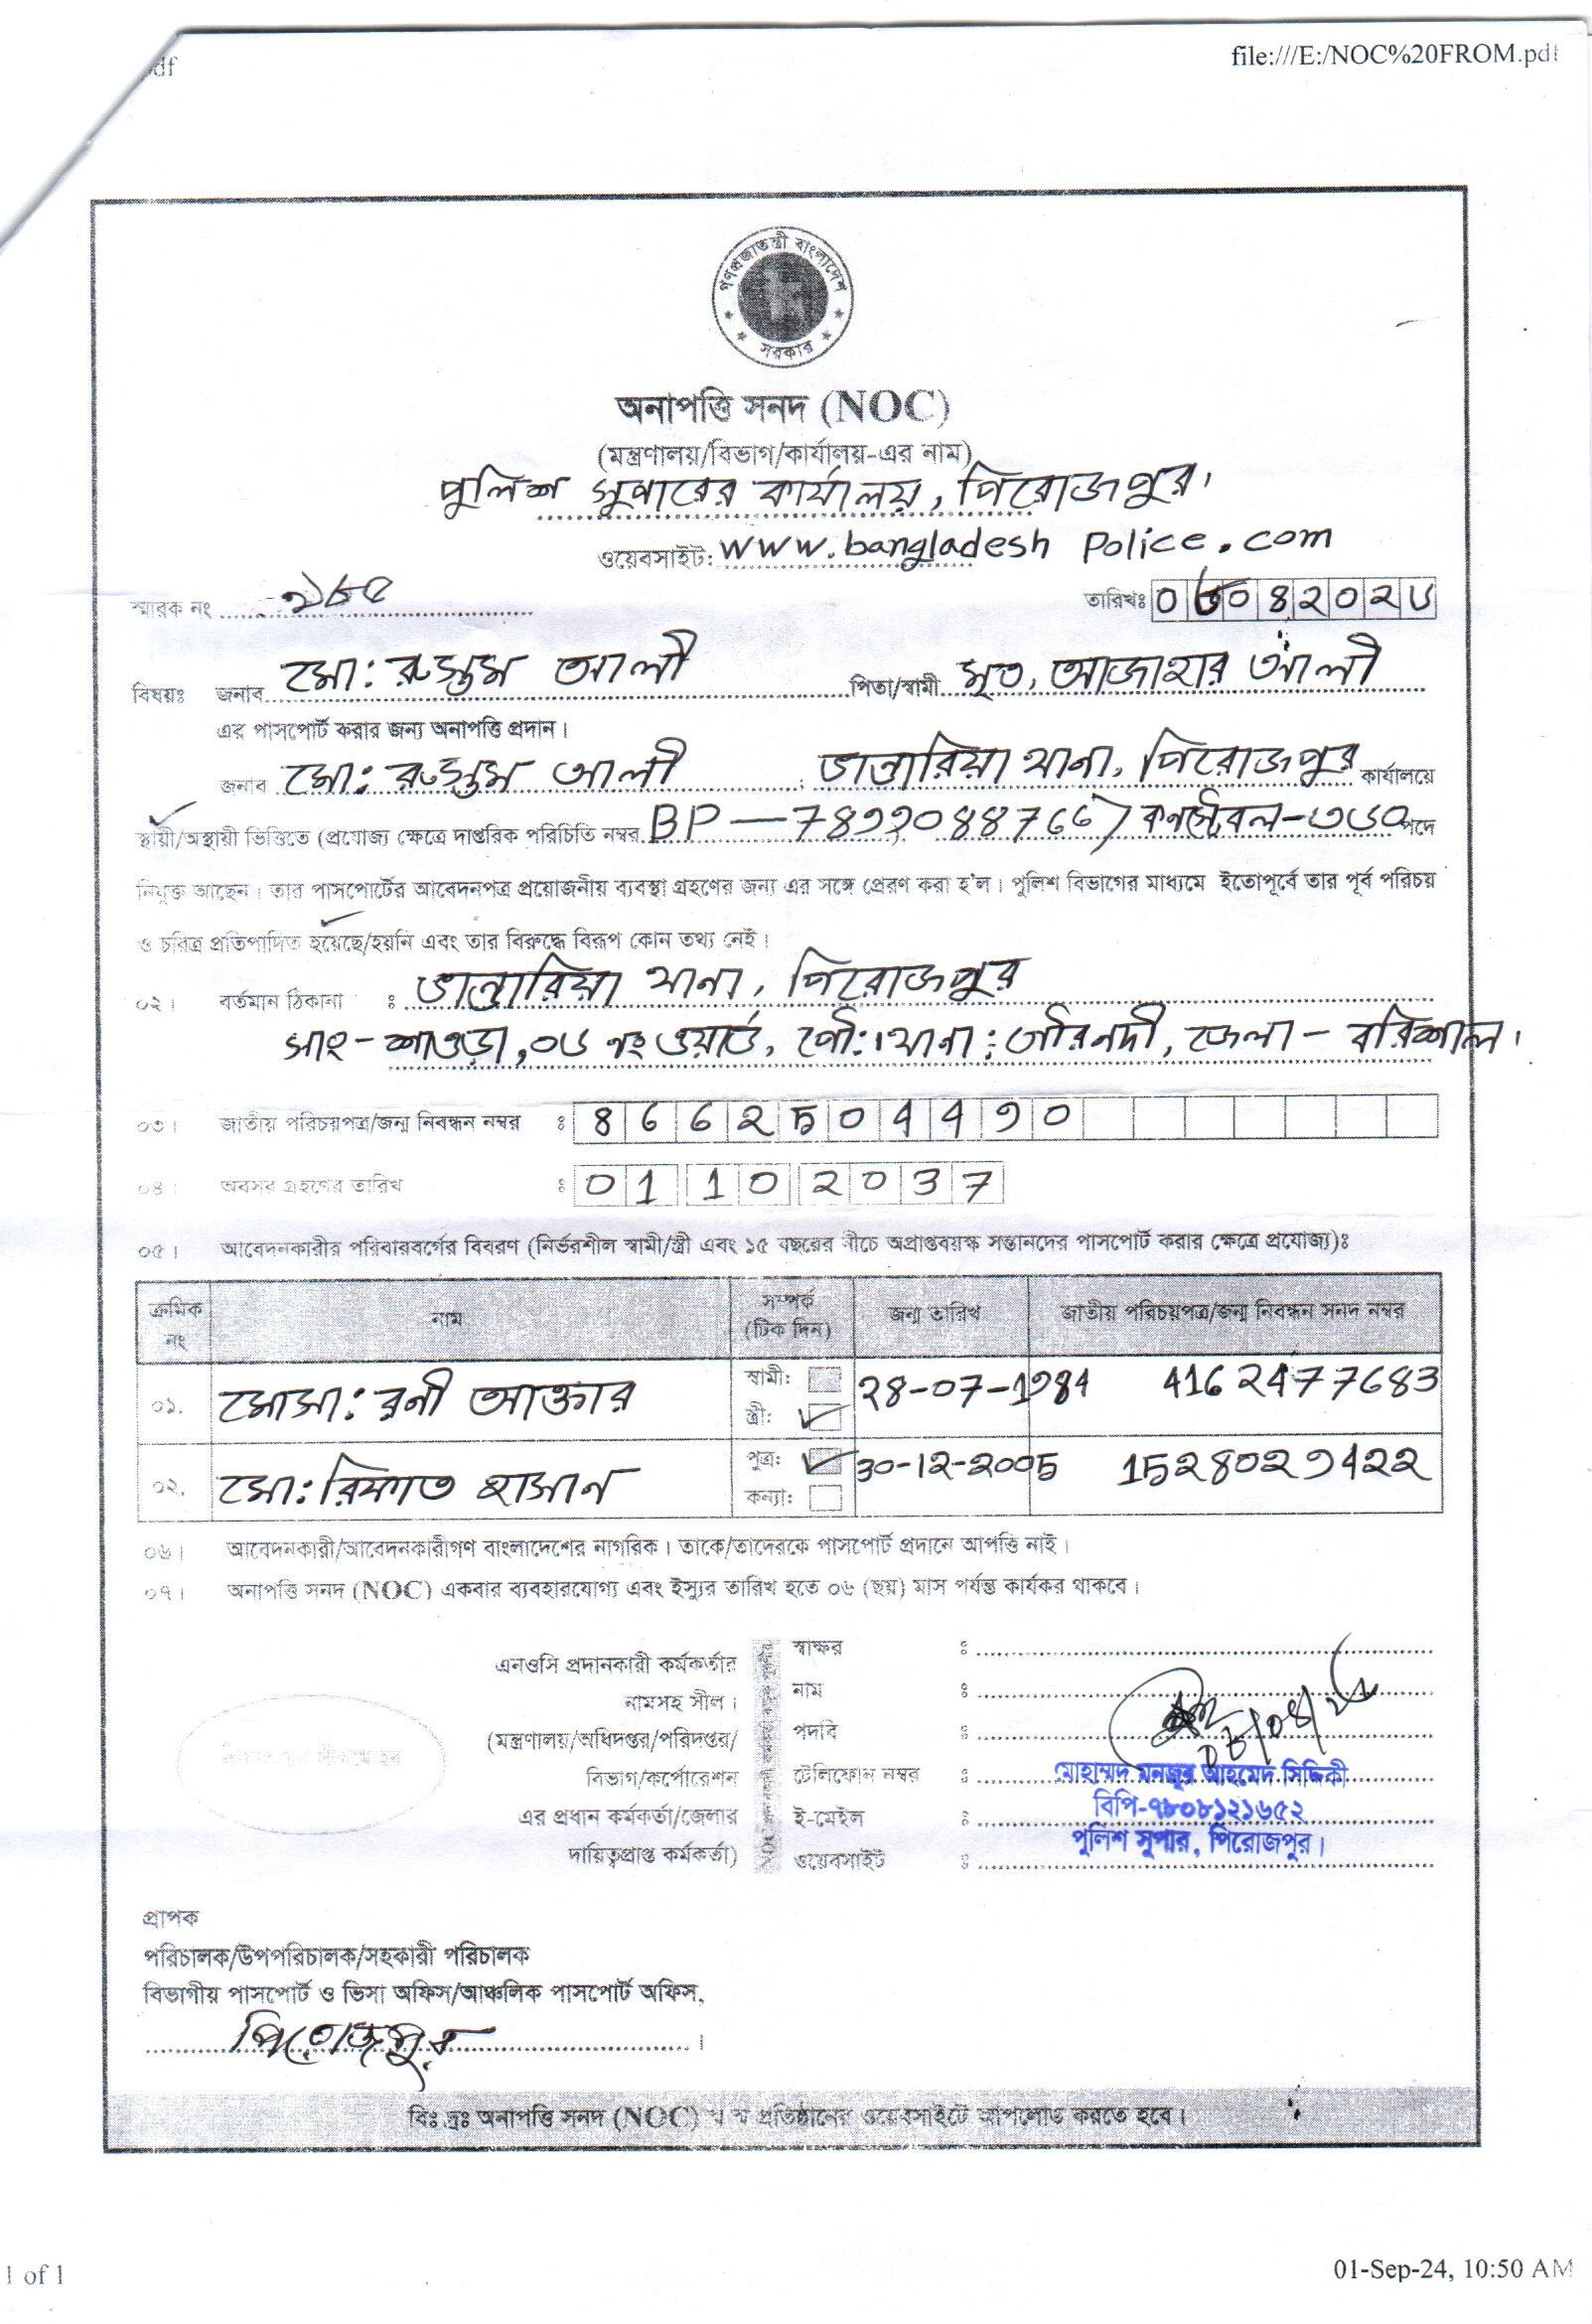 df
file:///E:/NOC%20FROM.pdf
গণপ্রজাতন্ত্রী বাংলাদেশ
সরকার
অনাপত্তি সনদ (NOC)
(মন্ত্রণালয়/বিভাগ/কার্যালয়-এর নাম)
পুলিশ সুপারের কার্যালয়, পিরোজপুর।
ওয়েবসাইট: www.bangladesh Police.com
স্মারক নং
তারিখঃ
বিষয়ঃ জনাব মো: রুস্তুম আলী পিতা/স্বামী মৃত, আজাহার আলী
এর পাসপোর্ট করার জন্য অনাপত্তি প্রদান।
জনাব মো: রুস্তুম আলী , ভান্ডারিয়া থানা, পিরোজপুর কার্যালয়ে
স্থায়ী/অস্থায়ী ভিত্তিতে (প্রযোজ্য ক্ষেত্রে দাপ্তরিক পরিচিতি নম্বর BP — ) কনস্টেবল-৩৬০ পদে
নিযুক্ত আছেন। তার পাসপোর্টের আবেদনপত্র প্রয়োজনীয় ব্যবস্থা গ্রহণের জন্য এর সঙ্গে প্রেরণ করা হ'ল। পুলিশ বিভাগের মাধ্যমে ইতোপূর্বে তার পূর্ব পরিচয়
ও চরিত্র প্রতিপাদিত হয়েছে/হয়নি এবং তার বিরুদ্ধে বিরূপ কোন তথ্য নেই।
০২। বর্তমান ঠিকানা ঃ ভান্ডারিয়া থানা, পিরোজপুর
সাং- শাওড়া, ০৬ নং ওয়ার্ড, পৌ: থানা: গৌরনদী, জেলা - বরিশাল।
০৩। জাতীয় পরিচয়পত্র/জন্ম নিবন্ধন নম্বর ঃ
০৪। অবসর গ্রহণের তারিখ ঃ 01 10 2037
০৫। আবেদনকারীর পরিবারবর্গের বিবরণ (নির্ভরশীল স্বামী/স্ত্রী এবং ১৫ বছরের নীচে অপ্রাপ্তবয়স্ক সন্তানদের পাসপোর্ট করার ক্ষেত্রে প্রযোজ্য)ঃ
ক্রমিক নং নাম সম্পর্ক (টিক দিন) জন্ম তারিখ জাতীয় পরিচয়পত্র/জন্ম নিবন্ধন সনদ নম্বর
০১. মোসা: রনী আক্তার স্বামী: 28-07-1984 4162477683
স্ত্রী:
০২. মো: রিফাত হাসান পুত্র: 30-12-2005 1528029422
কন্যা:
০৬। আবেদনকারী/আবেদনকারীগণ বাংলাদেশের নাগরিক। তাকে/তাদেরকে পাসপোর্ট প্রদানে আপত্তি নাই।
০৭। অনাপত্তি সনদ (NOC) একবার ব্যবহারযোগ্য এবং ইস্যুর তারিখ হতে ০৬ (ছয়) মাস পর্যন্ত কার্যকর থাকবে।
এনওসি প্রদানকারী কর্মকর্তার
নামসহ সীল।
(মন্ত্রণালয়/অধিদপ্তর/পরিদপ্তর/
বিভাগ/কর্পোরেশন
এর প্রধান কর্মকর্তা/জেলার
দায়িত্বপ্রাপ্ত কর্মকর্তা)
স্বাক্ষর ঃ
নাম ঃ
পদবি ঃ
টেলিফোন নম্বর ঃ
ই-মেইল ঃ
ওয়েবসাইট ঃ
মোহাম্মদ মনজুর আহমেদ সিদ্দিকী
বিপি-৭৮০৮১২১৬৫২
পুলিশ সুপার, পিরোজপুর।
প্রাপক
পরিচালক/উপপরিচালক/সহকারী পরিচালক
বিভাগীয় পাসপোর্ট ও ভিসা অফিস/আঞ্চলিক পাসপোর্ট অফিস,
পিরোজপুর ।
বিঃ দ্রঃ অনাপত্তি সনদ (NOC) স্ব স্ব প্রতিষ্ঠানের ওয়েবসাইটে আপলোড করতে হবে।
1 of 1
01-Sep-24, 10:50 AM